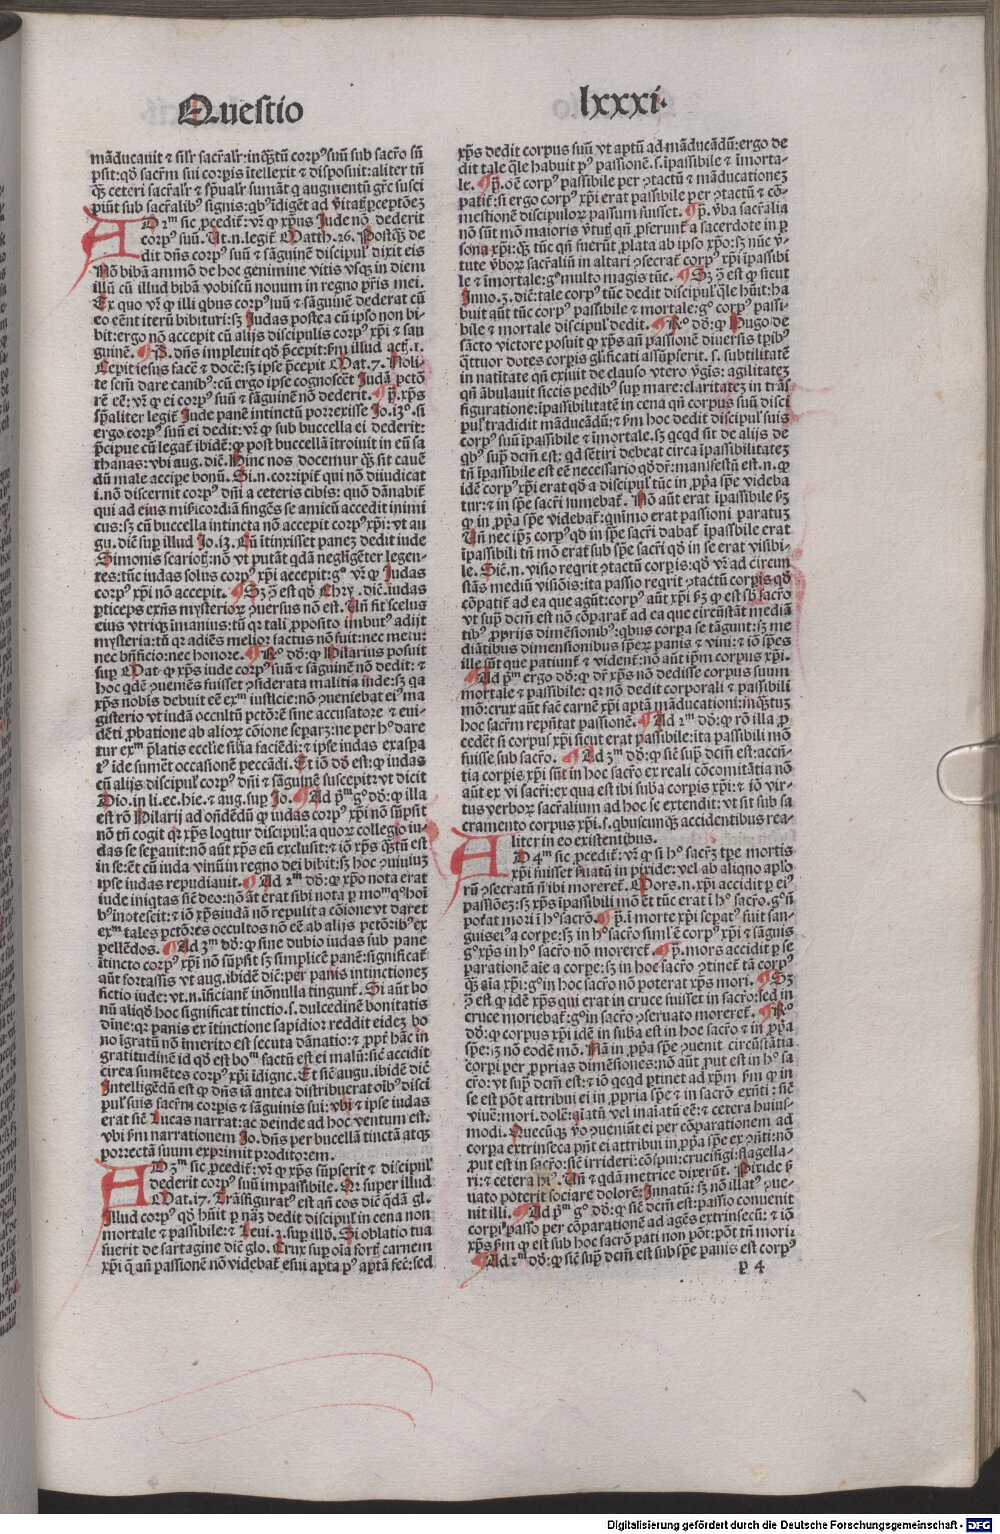 Questio
lxxxi.
mãducauit ⁊ silr sacr̃alr: inq̃ȝtũ corpꝰ suũ sub sacr̃o sũ
psit: qđ sacr̃m sui corpis ĩtellexit ⁊ disposuit: aliter tñ
q̃ȝ ceteri sacr̃alr ⁊ sp̃ualr sumãt q augmentũ gr̃e susci
piũt sub sacr̃alibꝰ signis: qbꝰ ĩdigẽt ad v̾itatꝭ pceptõeȝ
AD 2ᵐ sic ꝓcedit᷑: vr̃ ꝙ xp̃us Jude nõ dederit
corpꝰ suũ. At.n.legit᷑ Matth.26. Postq̃ȝ de
dit dñs corpꝰ suũ ⁊ sãguinẽ discipulꝭ dixit eis
Nõ bibã ammõ de hoc genimine vitis vsqȝ in diem
illũ cũ illud bibã vobiscũ nouum in regno pr̃is mei.
Ex quo vr̃ ꝙ illi qbus corpꝰ suũ ⁊ sãguinẽ dederat cũ
eo eẽnt iterũ bibituri: sȝ Judas postea cũ ipso non bi-
bit: ergo nõ accepit cũ alijs discipulis corpꝰ xp̃i ⁊ san
guinẽ. ¶ P̃. dñs impleuit qđ p̃cepit: ẜm illud act̃.1.
Cepit iesus facẽ ⁊ docẽ: sȝ ipse p̃cepit Mat.7. Noli-
te scm̃ dare canibꝰ: cũ ergo ipse cognoscẽt Judã pctõ
rẽ eẽ: vr̃ ꝙ ei corpꝰ suũ ⁊ sãguinẽ nõ dederit. ¶ P̃. xp̃s
sp̃aliter legit᷑ Jude panẽ intinctũ porrexisse Jo.13º. si
ergo corpꝰ suũ ei dedit: vr̃ ꝙ sub buccella ei dederit:
p̃cipue cũ legat᷑ ibidẽ: ꝙ post buccellã ĩtroiuit in eũ sa
thanas: vbi aug. dic̃. Hinc nos docemur q̃ȝ sit cauẽ
dũ male accipe bonũ. Si.n.corripit᷑ qui nõ diiudicat
i.nõ discernit corpꝰ dñi a ceteris cibis: quõ dãnabit᷑
qui ad eius mẽsã fingẽs se amicũ accedit inimi
cus: sȝ cũ buccella intincta nõ accepit corpꝰ xp̃i: vt au
gu. dic̃ sup illud Jo.13. Cũ ĩtinxisset paneȝ dedit iude
Simonis scarioth: nõ vt putãt qdã negligẽter legen-
tes: tũc iudas solus corpꝰ xp̃i accepit: gº vr̃ ꝙ Judas
corpꝰ xp̃i nõ accepit. ¶ Sȝ ꝯ̃ est qđ Chry. dic̃. iudas
pticeps exñs mysterioꝝ ꝯuersus nõ est. Uñ fit scelus
eius vtriqȝ imanius: tũ qr tali ꝓposito imbutꝰ adijt
mysteria: tũ qr adiẽs melior factus nõ fuit: nec metu:
nec bñficio: nec honore. ¶ Rº dõ: ꝙ Hilarius posuit
sup Mat. ꝙ xp̃s iude corpꝰ suũ ⁊ sãguinẽ nõ dedit: ⁊
hoc qdẽ ꝯueniẽs fuisset ꝯsiderata malitia iude: sȝ qa
xp̃s nobis debuit eẽ exᵐ iusticie: nõ ꝯueniebat eiꝰ ma
gisterio vt iudã occultũ pctõrẽ sine accusatore ⁊ eui-
dẽti ꝓbatione ab alioꝝ cõione separȝ: ne per hº dare
tur exᵐ p̃latis ecclie filia faciẽdi: ⁊ ipse iudas exaspa
tꝰ ĩde sumẽt occasionẽ peccãdi. Et iõ dõ est: ꝙ iudas
cũ alijs discipulꝭ corpꝰ dñi ⁊ sãguinẽ suscepit: vt dicit
Dio.in li.ec.hie.⁊ aug.sup Jo. ¶ Ad p̃ᵐ gº dõ: ꝙ illa
est rõ Hilarij ad oñdẽdũ ꝙ iudas corpꝰ xp̃i nõ sũpsit
nõ tñ cogit qr xp̃s loqtur discipulꝭ a quoꝝ collegio iu-
das se sepauit: nõ aũt xp̃s eũ exclusit: ⁊ iõ xp̃s q̃tũ est
in se: eẽt cũ iuda vinũ in regno dei bibit: sȝ hoc ꝯuiuiũ
ipse iudas repudiauit. ¶ Ad 2ᵐ dõ: ꝙ xp̃o nota erat
iude iniqtas sic̃ deo: nõ aũt erat sibi nota p moᵐ qº hoĩ
bꝰ ĩnotescit: ⁊ iõ xp̃s iudã nõ repulit a cõione vt daret
exᵐ tales pctõres occultos nõ eẽ ab alijs pctõribꝰ ex
pellẽdos. ¶ Ad 3ᵐ dõ: ꝙ sine dubio iudas sub pane
ĩtincto corpꝰ xp̃i nõ sũpsit sȝ simplicẽ panẽ: significat᷑
aũt fortassis vt aug.ibidẽ dic̃: per panis intinctioneȝ
fictio iude: vt.n.ĩficiant᷑ inõnulla tingunt᷑. Si aũt bo
nũ aliqđ hoc significat tinctio.s.dulcedinẽ bonitatis
diũe: qr panis ex ĩtinctione sapidior reddit᷑ eideȝ bo
no ĩgratũ nõ ĩmerito est secuta dãnatio: ⁊ ꝓpt̃ hãc in
gratitudinẽ id qđ est boᵐ factũ est ei malũ: sic̃ accidit
circa sumẽtes corpꝰ xp̃i ĩdigne. Et sic̃ augu.ibidẽ dic̃
Intelligẽdũ est ꝙ dñs iã antea distribuerat oĩbꝰ disci
pulꝭ suis sacr̃m corpis ⁊ sãguinis sui: vbi ⁊ ipse iudas
erat sic̃ Lucas narrat: ac deinde ad hoc ventum est.
vbi ẜm narrationem Jo.dñs per bucellã tinctã atqȝ
porrectã suum exprimit proditorem.
AD 3ᵐ sic ꝓcedit᷑: vr̃ ꝙ xp̃s sũpserit ⁊ discipulꝭ
dederit corpꝰ suũ impassibile. Qr super illud
Mat.17. Trãsfiguratꝰ est añ eos dic̃ qdã gl.
Illud corpꝰ qđ hũit p nãȝ dedit discipulꝭ in cena non
mortale ⁊ passibile: ⁊ Leui.2.sup illđ. Si oblatio tua
fuerit de sartagine dic̃ glo. Crux sup oĩa fortꝭ carnem
xp̃i q̃ añ passionẽ nõ videbat᷑ esui apta pꝰ aptã fec̃: sed
xp̃s dedit corpus suũ vt aptũ ad mãducãdũ: ergo de
dit tale q̃le habuit pꝰ passionẽ.s.ĩpassibile ⁊ ĩmorta-
le. ¶ P̃. oẽ corpꝰ passibile per ꝯtactũ ⁊ mãducationeȝ
patit᷑: si ergo corpꝰ xp̃i erat passibile per ꝯtactũ ⁊ cõ-
mestionẽ discipuloꝝ passum fuisset. ¶ P̃. v̾ba sacr̃alia
nõ sũt mõ maioris v̾tutꝭ qñ ꝓferunt᷑ a sacerdote in p
sona xp̃i: q̃ȝ tũc qñ fuerũt ꝓlata ab ipso xp̃o: sȝ nũc v̾-
tute v̾boꝝ sacr̃aliũ in altari ꝯsecrat᷑ corpꝰ xp̃i ĩpassibi
le ⁊ ĩmortale: gº multo magis tũc. ¶ Sȝ ꝯ̃ est ꝙ sicut
Inno.3.dic̃: tale corpꝰ tũc dedit discipulꝭ q̃le hũit: ha
buit aũt tũc corpꝰ passibile ⁊ mortale: gº corpꝰ passi-
bile ⁊ mortale discipulꝭ dedit. ¶ Rº dõ: ꝙ Hugo de
sãcto victore posuit ꝙ xp̃s añ passionẽ diuersis tp̃ibꝰ
q̃ttuor dotes corpis gl̃ificati assũpserit.s.subtilitatẽ
in natiũtate qñ exiuit de clauso vtero v̾gis: agilitateȝ
qñ ãbulauit siccis pedibꝰ sup mare: claritateȝ in trãs
figuratione: ĩpassibilitatẽ in cena qñ corpus suũ disci
pulꝭ tradidit mãducãdũ: ⁊ ẜm hoc dedit discipulꝭ suis
corpꝰ suũ ĩpassibile ⁊ ĩmortale. sȝ qcqd sit de alijs de
qbꝰ sup dcm̃ est: qd sẽtiri debeat circa ĩpassibilitateȝ
tñ ĩpassibile est eẽ necessario qđ dr̃: manifestũ est.n.ꝙ
idẽ corpꝰ xp̃i erat qđ a discipulꝭ tũc in ꝓp̃a sp̃e videba
tur: ⁊ in sp̃e sacr̃i sumebat᷑. Nõ aũt erat ĩpassibile ẜȝ
ꝙ in ꝓp̃a sp̃e videbat᷑: qnimo erat passioni paratuȝ
Uñ nec ip̃ȝ corpꝰ qđ in sp̃e sacr̃i dabat᷑ ĩpassbile erat
ĩpassibili tñ mõ erat sub sp̃e sacr̃i qđ in se erat visibi-
le. Sic̃.n.visio reqrit ꝯtactũ corpis: qđ vr̃ ad circum
stãs mediũ visiõis: ita passio reqrit ꝯtactũ corpis qđ
cõpatit᷑ ad ea que agũt: corpꝰ aũt xp̃i ẜȝ ꝙ est sb̾ sacr̃o
vt sup dcm̃ est nõ cõparat᷑ ad ea que circũstãt mediã
tibꝰ ꝓprijs dimẽsionibꝰ: qbus corpa se tãgunt: sȝ me
diãtibus dimensionibus sp̃eꝝ panis ⁊ vini: ⁊ iõ sp̃es
ille sũt que patiunt᷑ ⁊ vident᷑: nõ aũt ip̃m corpus xp̃i.
¶ Ad p̃ᵐ ergo dõ: ꝙ dr̃ xp̃s nõ dedisse corpus suum
mortale ⁊ passibile: qr nõ dedit corporali ⁊ passibili
mõ: crux aũt fac̃ carnẽ xp̃i aptã mãducationi: inq̃ȝtuȝ
hoc sacr̃m repñtat passionẽ. ¶ Ad 2ᵐ dõ: ꝙ rõ illa ꝓ
cedẽt si corpus xp̃i sicut erat passibile: ita passibili mõ
fuisse sub sacr̃o. ¶ Ad 3ᵐ dõ: ꝙ sic̃ sup̾ dcm̃ est: accñ-
tia corpis xp̃i sũt in hoc sacr̃o ex reali cõcomitãtia nõ
aũt ex vi sacr̃i: ex qua est ibi suba corpis xp̃i: ⁊ iõ vir-
tus verboꝝ sacr̃alium ad hoc se extendit: vt sit sub sa
cramento corpus xp̃i.s.qbuscunqȝ accidentibus rea-
liter in eo existentibus.
AD 4ᵐ sic ꝓcedit᷑: vr̃ ꝙ si hº sacr̃ȝ tp̃e mortis
xp̃i fuisset ẜuatũ in pixide: vel ab aliqno aplo
rũ ꝯsecratũ ñ ibi moreret᷑. Mors.n.xp̃i accidit p eiꝰ
passiõeȝ: sȝ xp̃s ĩpassibili mõ eẽt tũc erat ĩ hº sacr̃o. gº ñ
potat᷑ mori ĩ hº sacr̃o. ¶ P̃. ĩ morte xp̃i sepatꝰ fuit san-
guis eiꝰ a corpe: sȝ in hº sacr̃o siml̾ ẽ corpꝰ xp̃i ⁊ sãguis
gº xp̃s in hº sacr̃o nõ moreret᷑. ¶ P̃. mors accidit p se
parationẽ aĩe a corpe: sȝ in hoc sacr̃o ꝯtinet᷑ tã corpꝰ
q̃ȝ aĩa xp̃i: gº in hoc sacr̃o nõ poterat xp̃s mori. ¶ Sȝ
ꝯ̃ est ꝙ idẽ xp̃s qui erat in cruce fuisset in sacr̃o: sed in
cruce moriebat᷑: gº in sacr̃o ꝯseruato moreret᷑. ¶ Rº
dõ: ꝙ corpus xp̃i idẽ in suba est in hoc sacr̃o ⁊ in ꝓp̃a
sp̃e: sȝ nõ eodẽ mõ. Nã in ꝓp̃a sp̃e ꝯuenit circũstãtia
corpi per ꝓprias dimẽsiones: nõ aũt ꝓut est in hº sa
cr̃o: vt sup dcm̃ est: ⁊ iõ qcqd ptinet ad xp̃m ẜm ꝙ in
se est põt attribui ei in ꝓpria sp̃e ⁊ in sacr̃o exñti: sic̃
viuẽ: mori. dolẽ: aĩatũ vel inaĩatũ eẽ: ⁊ cetera huius-
modi. Quecũqȝ v̾o ꝯueniũt ei per cõparationem ad
corpa extrinseca pñt ei attribui in ꝓp̃a sp̃e ex ñti: nõ
ꝓut est in sacr̃o: sic̃ irrideri: cõspui: crucifigi: flagella-
ri: ⁊ cetera hiꝰ. Uñ ⁊ qdã metrice dixerũt. Pixide ẜ
uato poterit sociare dolorẽ: Innatũ: sȝ nõ illatꝰ ꝯue-
nit illi. ¶ Ad p̃ᵐ gº dõ: ꝙ sic̃ dcm̃ est: passio conuenit
corpi passo per cõparationẽ ad agẽs extrinsecũ: ⁊ iõ
xp̃s ẜm ꝙ est sub hoc sacr̃o pati non põt: põt tñ mori:
¶ Ad 2ᵐ dõ: ꝙ sic̃ sup̾ dcm̃ est sub sp̃e panis est corpꝰ
p 4
Digitalisierung gefördert durch die Deutsche Forschungsgemeinschaft - DFG